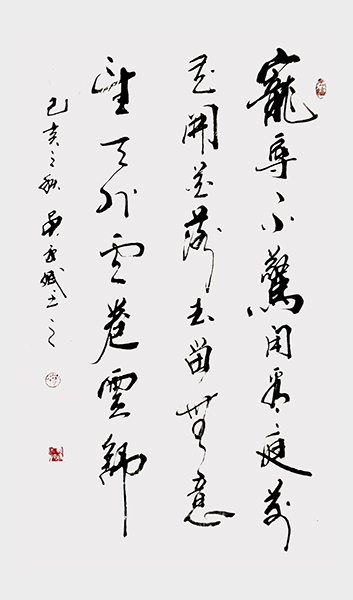 寵辱不驚閒看庭前
花開花落去留無意
望天外雲卷雲舒
己亥之秋